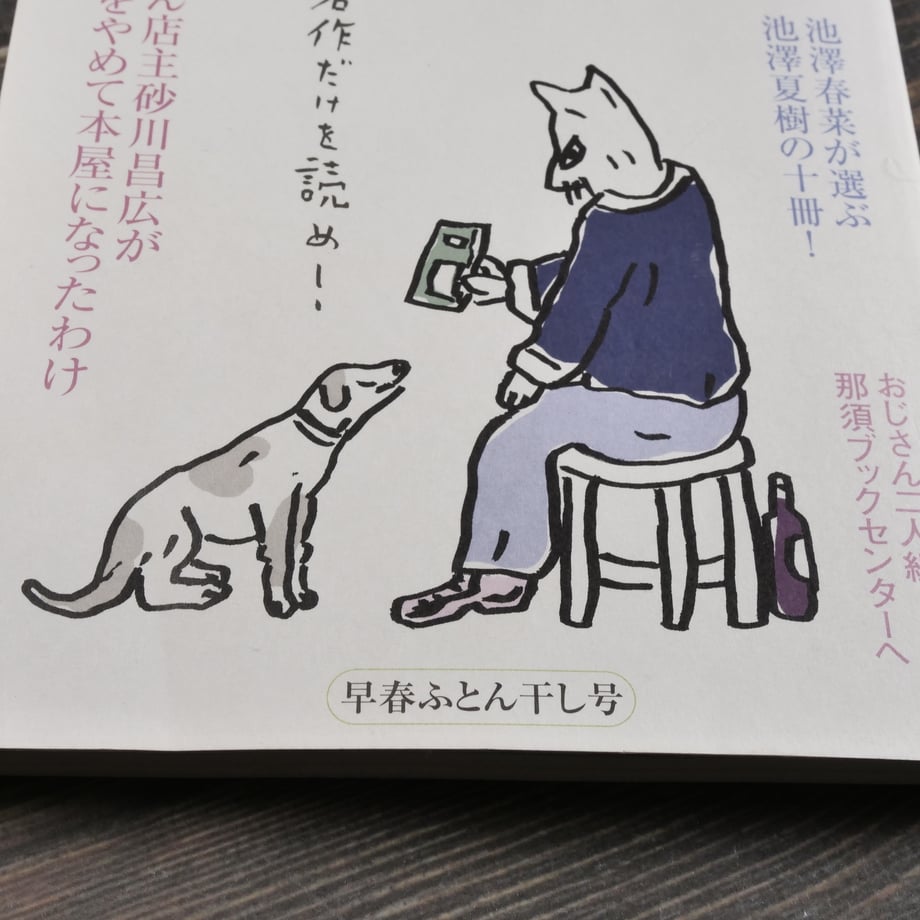 池澤春菜が選ぶ
池澤夏樹の十冊！
おじさん二人
那須ブックセンターへ
名作だけを読めー、
ん店主砂川昌広が
をやめて本屋になったわけ
早春ふとん干し号